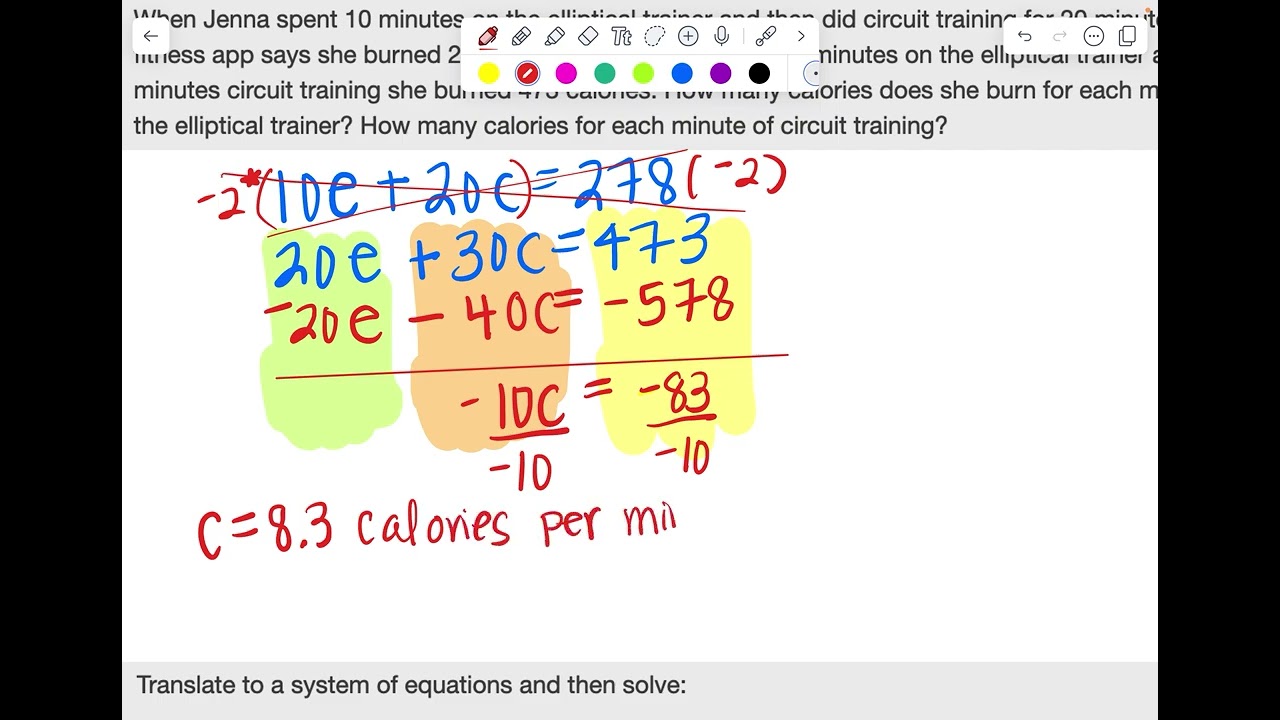 When Jenna spent 10 minutes on the elliptical trainer and then did circuit training for 20
fitness app says she burned 2 minutes on the elliptical trainer
minutes circuit training she burned 473 calories. How many calories does she burn for each m
the elliptical trainer? How many calories for each minute of circuit training?
Tt
-2*(10e + 20c) = 278(-2)
20e + 30c = 473
-20e - 40c = -578
-10c = -83
-10 -10
c = 8.3 calories per min
Translate to a system of equations and then solve: